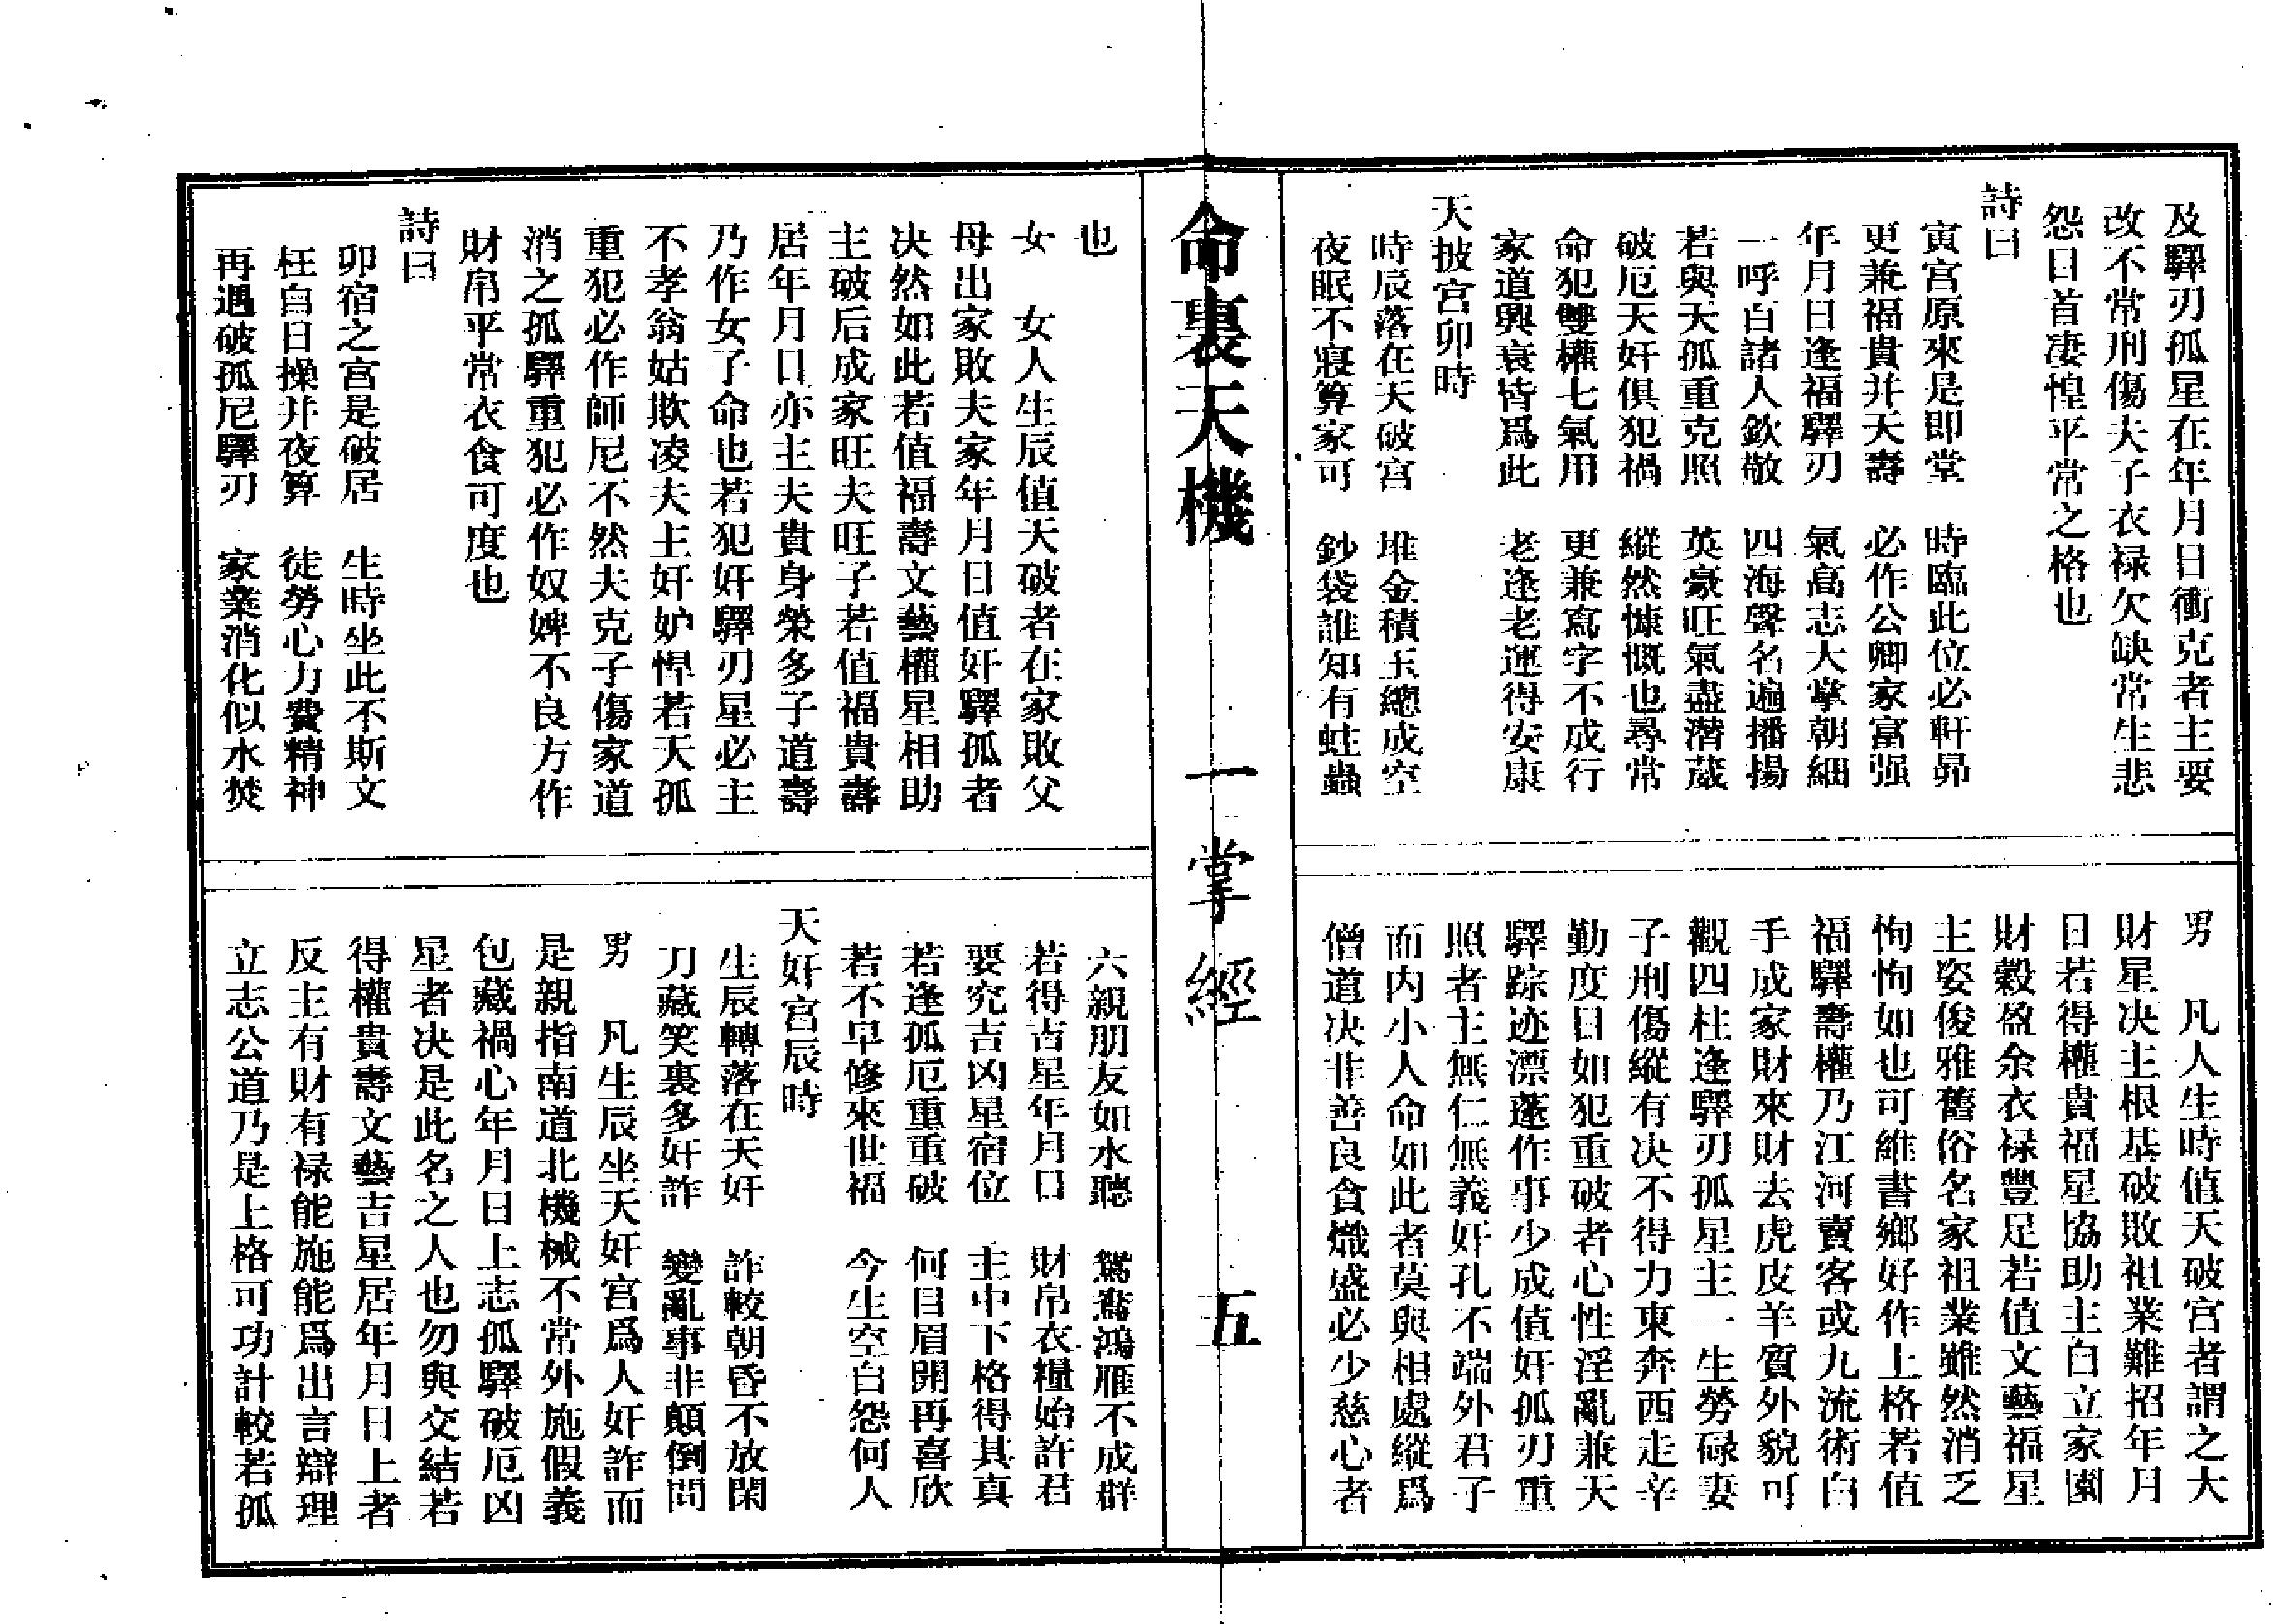 及驛刃孤星在年月日衝克者主要
改不常刑傷夫子衣禄欠缺常生悲
怨日首凄惶平常之格也
詩曰
寅宮原來是即堂　時臨此位必軒昴
更兼福貴并天壽　必作公卿家富强
年月日逢福驛刃　氣高志大掌朝細
一呼百諸人欽敬　四海聲名遍播揚
若與天孤重克照　英豪旺氣盡潜葳
破厄天奸俱犯禍　縱然慷慨也尋常
命犯雙權七氣用　更兼寫字不成行
家道興衰皆爲此　老逢老運得安康
天披宮卯時
時辰落在天破宮　堆金積玉總成空
夜眠不寢算家可　鈔袋誰知有蛀蟲
男　凡人生時值天破宮者謂之大
財星决主根基破敗祖業難招年月
日若得權貴福星協助主白立家園
財穀盈余衣禄豐足若值文藝福星
主姿俊雅舊俗名家祖業雖然消乏
恂恂如也可維書鄉好作上格若值
福驛壽權乃江河賣客或九流術白
手成家財來財去虎皮羊質外貌可
觀四柱逢驛刃孤星主一生勞碌妻
子刑傷縱有决不得力東奔西走辛
勤度日如犯重破者心性淫亂兼天
驛踪迹漂蓬作事少成值奸孤刃重
照者主無仁無義奸孔不端外君子
而内小人命如此者莫與相處縱爲
僧道决非善良貪熾盛必少慈心者
命裏天機　一掌經　五
也
女　女人生辰值天破者在家敗父
母出家敗夫家年月日值奸驛孤者
决然如此若值福壽文藝權星相助
主破后成家旺夫旺子若值福貴壽
居年月日亦主夫貴身榮多子道壽
乃作女子命也若犯奸驛刃星必主
不孝翁姑欺凌夫主奸妒悍若天孤
重犯必作師尼不然夫克子傷家道
消之孤驛重犯必作奴婢不良方作
財帛平常衣食可度也
詩曰
卯宿之宮是破居　生時坐此不斯文
枉自日操井夜算　徒勞心力費精神
再遇破孤尼驛刃　家業消化似水焚
六親朋友如水聽　鴛鴦鴻雁不成群
若得吉星年月日　財帛衣糧始許君
要究吉凶星宿位　主中下格得其真
若逢孤厄重重破　何目眉開再喜欣
若不早修來世福　今生空白怨何人
天奸宮辰時
生辰轉落在天奸　詐較朝昏不放閑
刀藏笑裏多奸詐　變亂事非顛倒問
男　凡生辰坐天奸宮爲人奸詐而
是親指南道北機械不常外施假義
包藏禍心年月日上志孤驛破厄凶
星者决是此名之人也勿與交結若
得權貴壽文藝吉星居年月日上者
反主有財有禄能施能爲出言辯理
立志公道乃是上格可功計較若孤